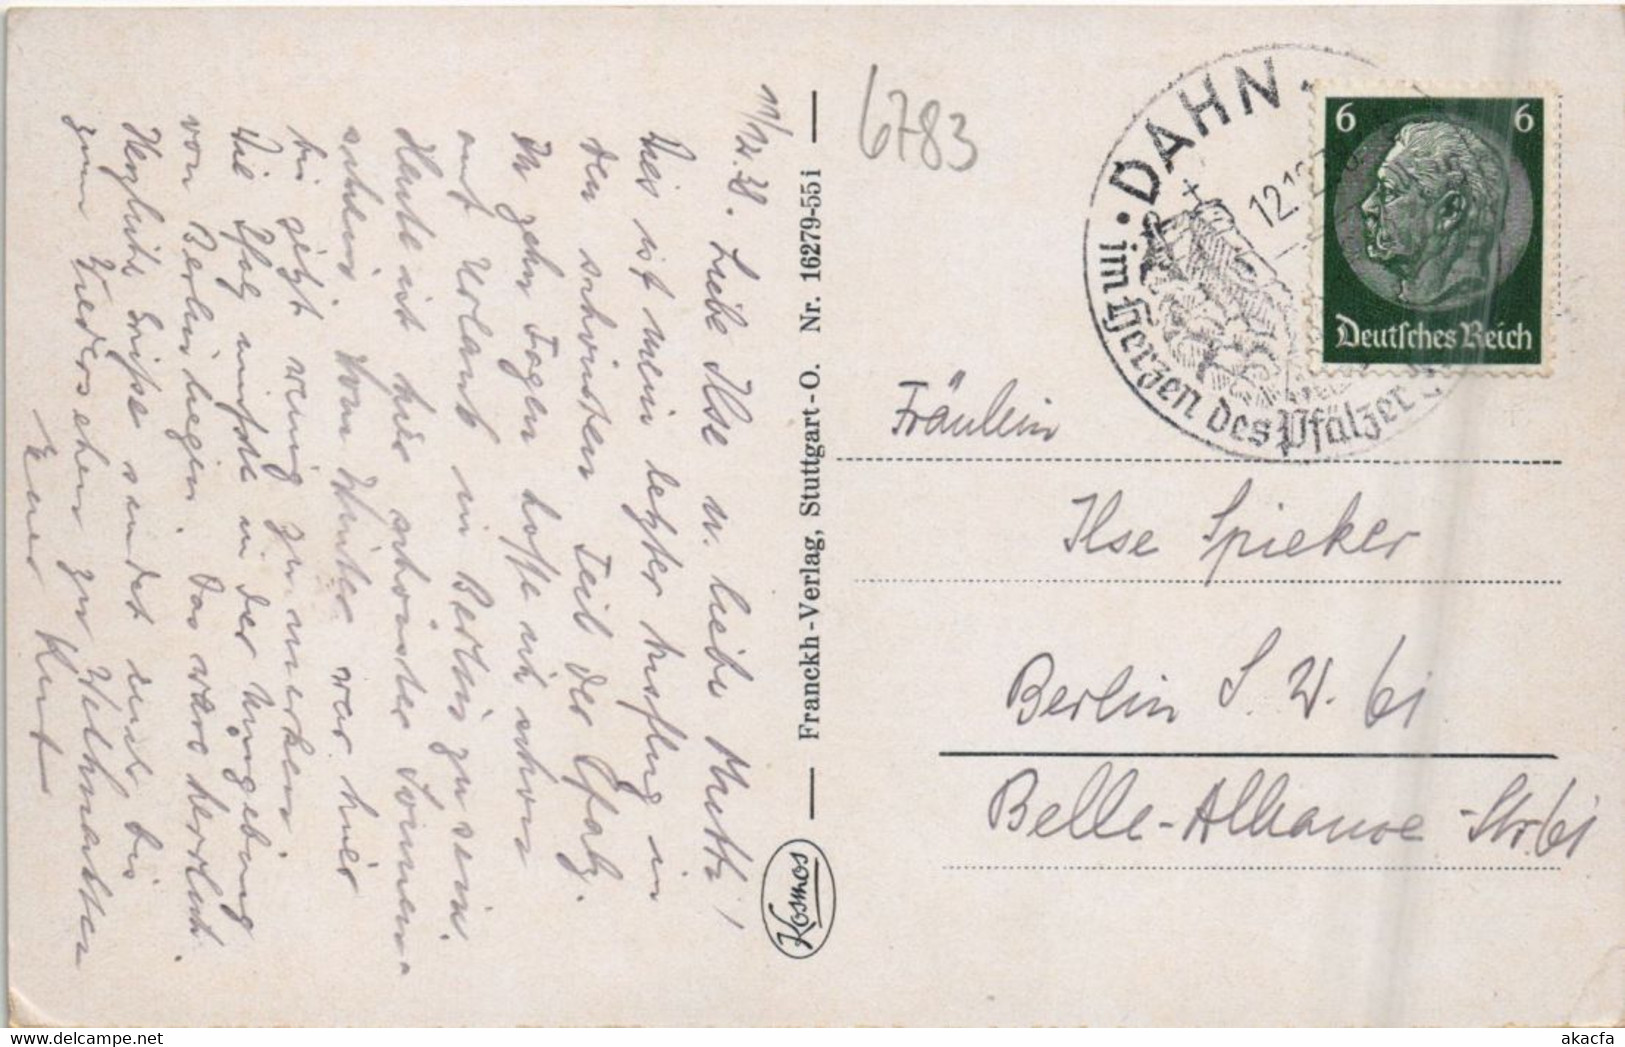 11/12.38. Liebe Ilse u. liebe Mutti!
Dies ist mein letzter Ausflug in
den schönsten Teil der Pfalz.
In zehn Tagen hoffe ich schon
auf Urlaub in Berlin zu sein.
Heute ist hier schönster Sonnen-
schein. Vom Winter war hier
bis jetzt wenig zu merken.
Die Pfalz müsste in der Umgebung
von Berlin liegen. Das wäre herrlich.
Herzliche Grüße sendet Euch bis
zum Wiedersehen zu Weihnachten
Euer Kurt
Franckh-Verlag, Stuttgart-O. Nr. 16279-55i
Kosmos
6783
DAHN
12.12
im Herzen des Pfälzer
6 6
Deutsches Reich
Fräulein
Ilse Spieker
Berlin S. W. 61
Belle-Alliance-Str. 61
akacfa